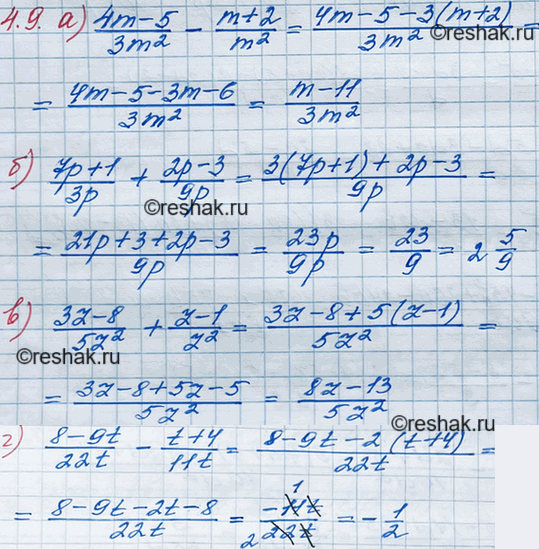 4.9. а) (4m-5)/(3m²) - (m+2)/(m²) = (4m-5-3(m+2))/(3m²) =
= (4m-5-3m-6)/(3m²) = (m-11)/(3m²)
б) (7p+1)/(3p) + (2p-3)/(9p) = (3(7p+1)+2p-3)/(9p) =
©reshak.ru
= (21p+3+2p-3)/(9p) = (23p)/(9p) = 23/9 = 2 5/9
в) (3z-8)/(5z²) + (z-1)/(z²) = (3z-8+5(z-1))/(5z²) =
©reshak.ru
= (3z-8+5z-5)/(5z²) = (8z-13)/(5z²)
©reshak.ru
г) (8-9t)/(22t) - (t+4)/(11t) = (8-9t-2(t+4))/(22t) =
= (8-9t-2t-8)/(22t) = (-11t)/(22t) = -1/2
1
2